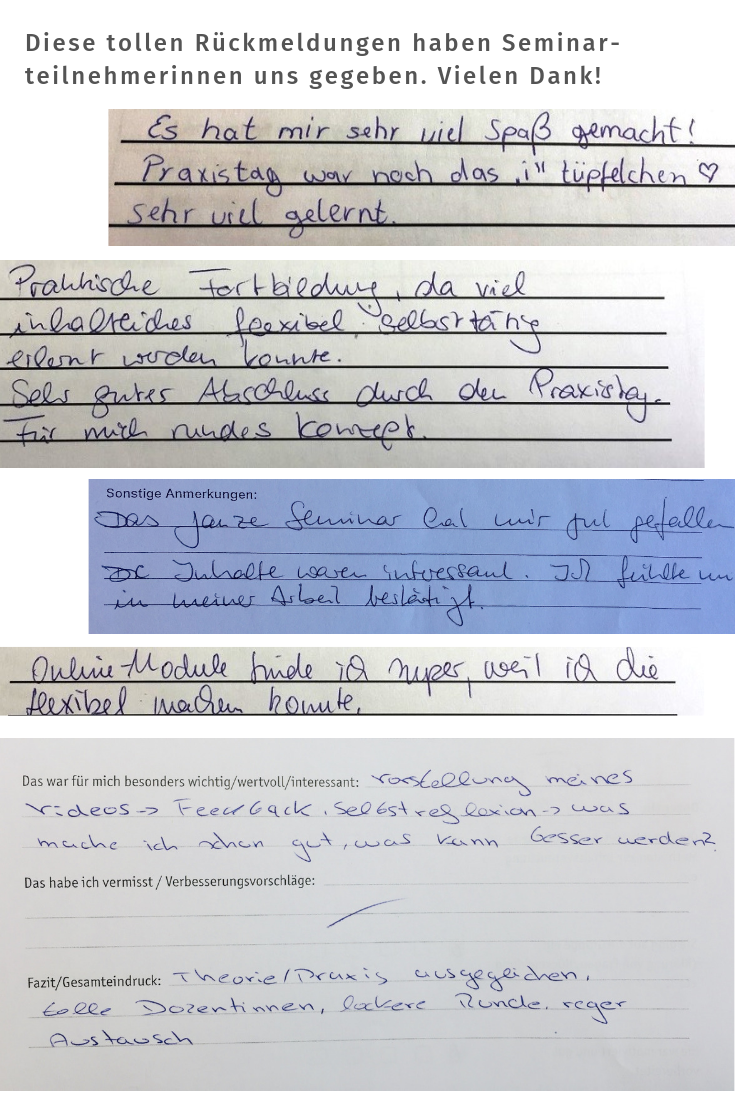 Diese tollen Rückmeldungen haben Seminar-
teilnehmerinnen uns gegeben. Vielen Dank!
Es hat mir sehr viel Spaß gemacht!
Praxistag war noch das „i" tüpfelchen ♡
sehr viel gelernt.
Praktische Fortbildung, da viel
inhaltliches flexibel selbsttätig
erlernt werden konnte.
Sehr guter Abschluss durch den Praxistag.
Für mich rundes Konzept.
Sonstige Anmerkungen:
Das ganze Seminar hat mir gut gefallen
Inhalte waren interessant. Ich fühlte
in meiner Arbeit bestätigt.
Online-Module finde ich super, weil ich die
flexibel machen konnte.
Das war für mich besonders wichtig/wertvoll/interessant: Vorstellung meines
Videos -> Feedback, Selbstreflexion -> was
mache ich schon gut, was kann besser werden?
Das habe ich vermisst / Verbesserungsvorschläge:
Fazit/Gesamteindruck: Theorie/Praxis ausgeglichen,
tolle Dozentinnen, lockere Runde, reger
Austausch